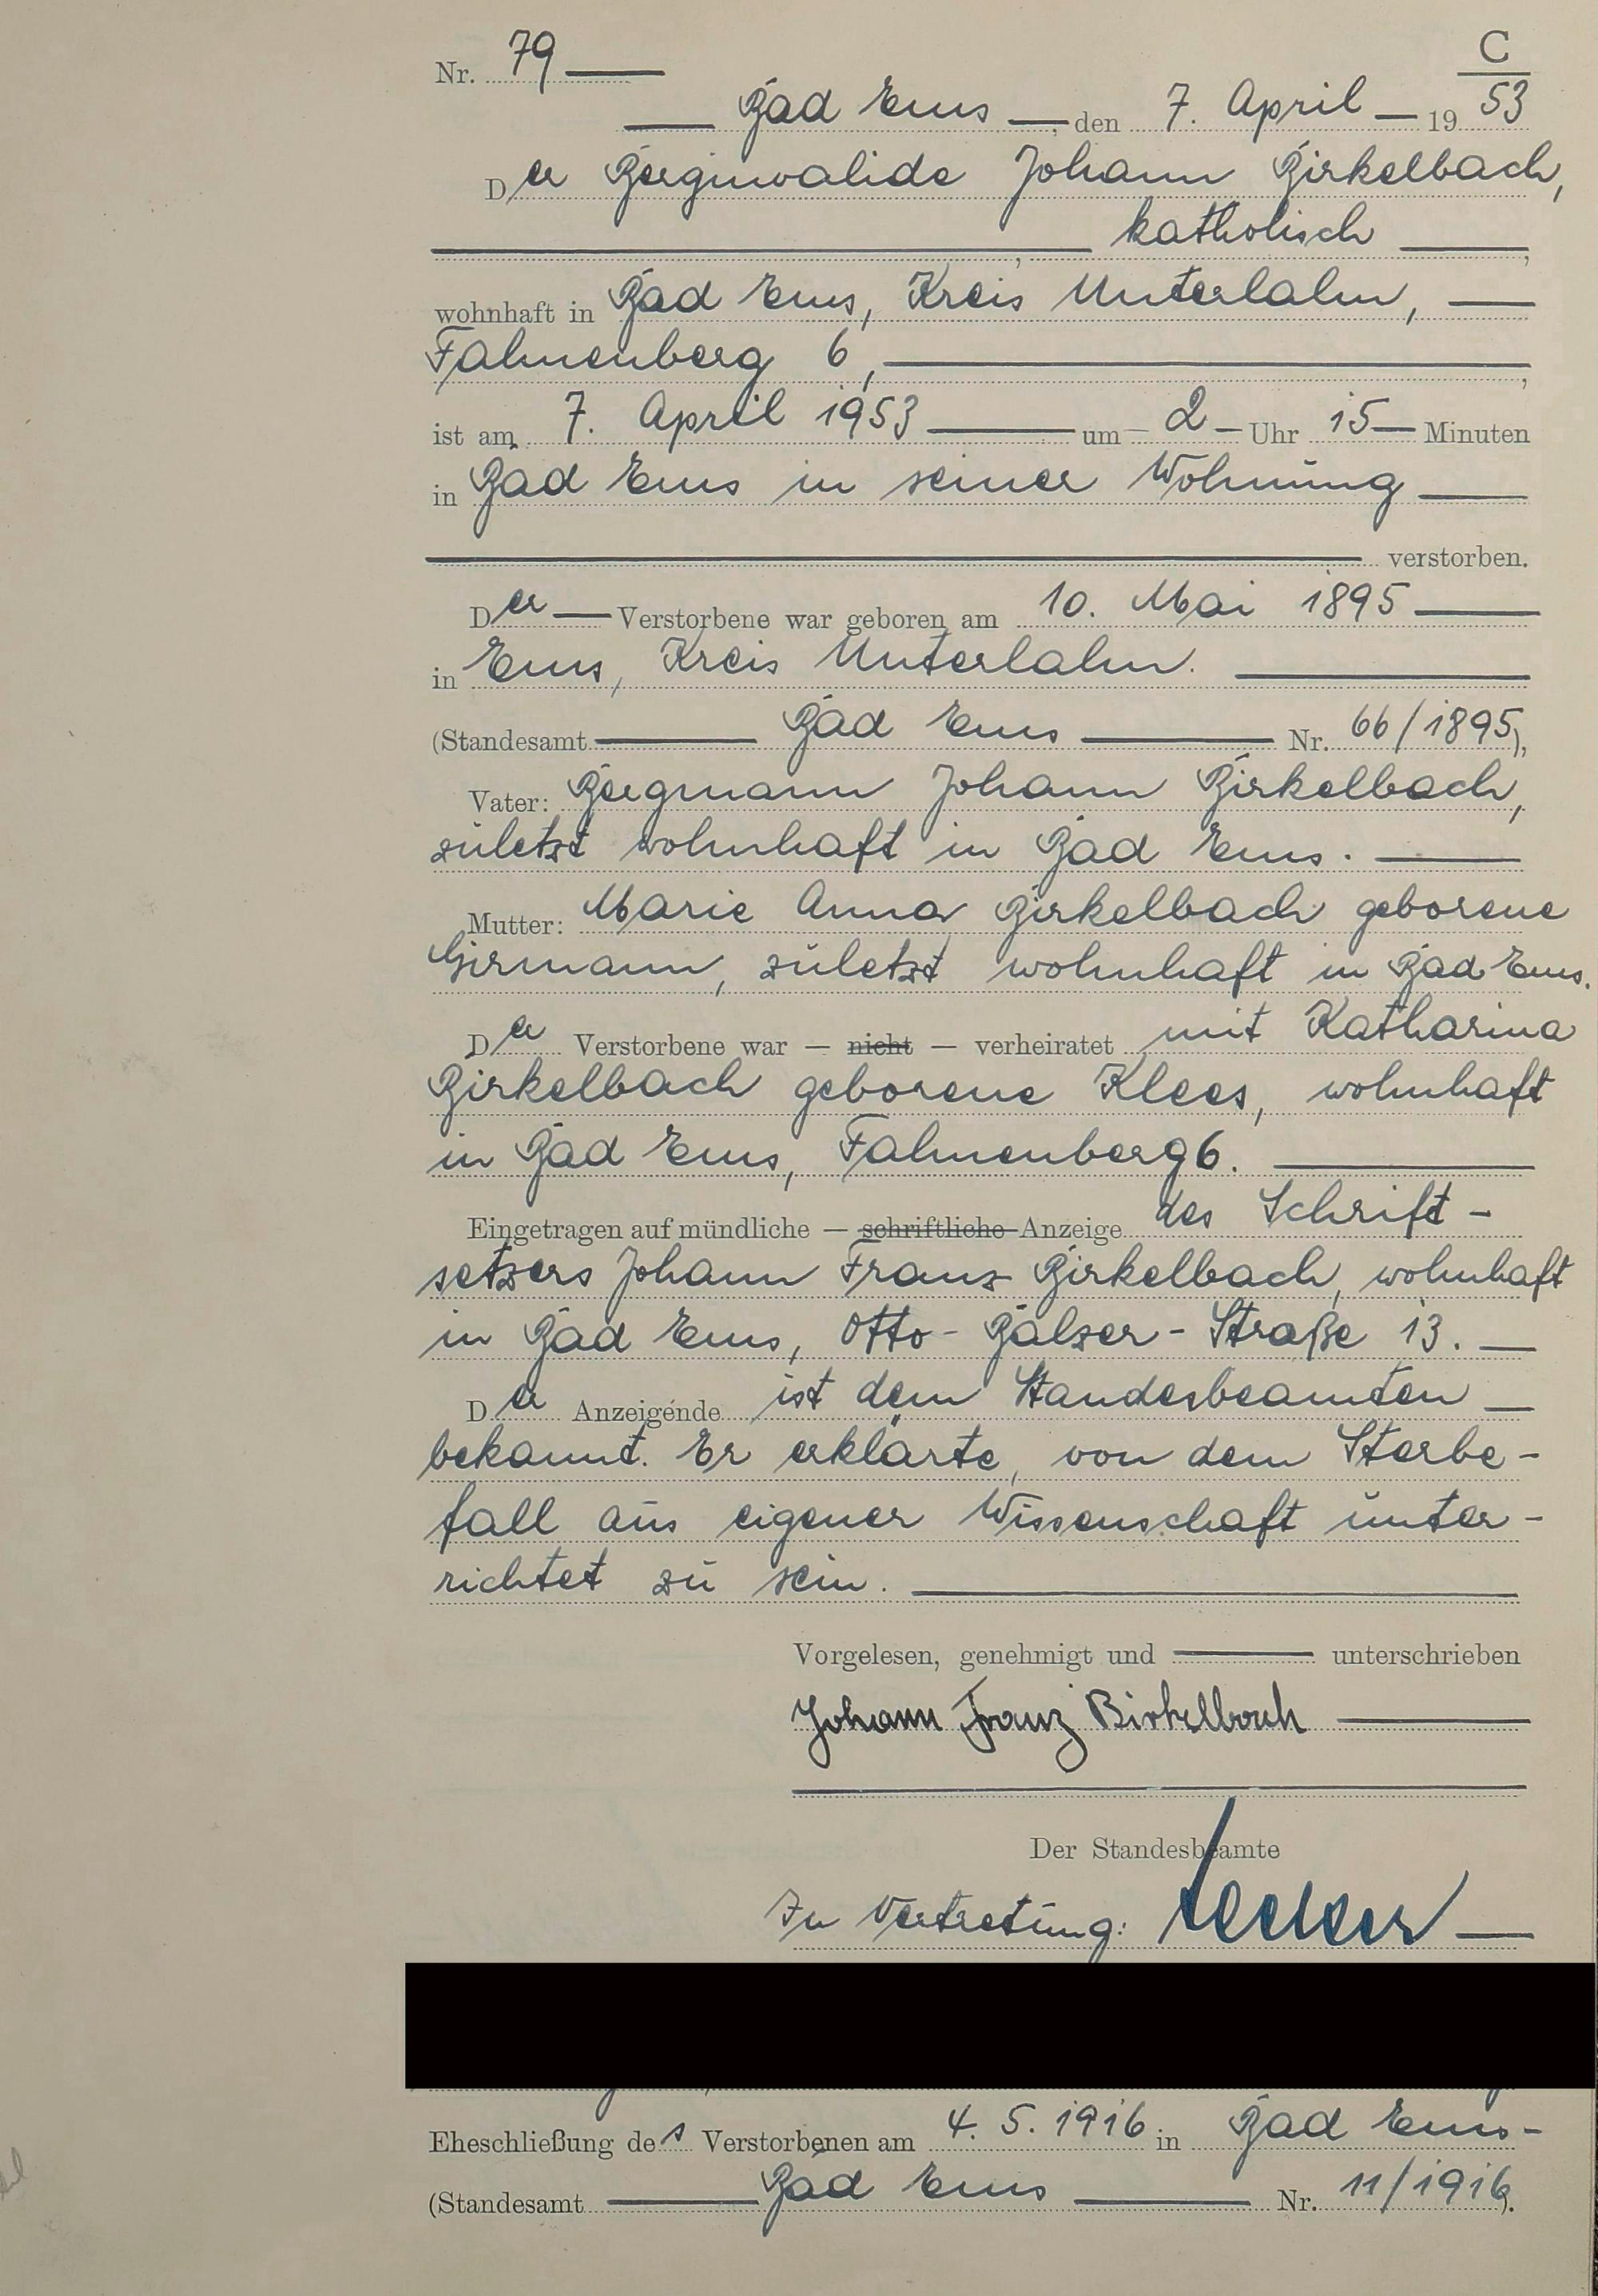 Nr. 79
C
Bad Ems, den 7. April 19 53
Der Berginvalide Johann Birkelbach,
katholisch
wohnhaft in Bad Ems, Kreis Unterlahn,
Fahnenberg 6,
ist am 7. April 1953 um 2 Uhr 15 Minuten
in Bad Ems in seiner Wohnung
verstorben.
Der Verstorbene war geboren am 10. Mai 1895
in Ems, Kreis Unterlahn.
(Standesamt Bad Ems Nr. 66/1895),
Vater: Bergmann Johann Birkelbach,
zuletzt wohnhaft in Bad Ems.
Mutter: Marie Anna Birkelbach geborene
Girmann, zuletzt wohnhaft in Bad Ems.
Der Verstorbene war — nicht — verheiratet mit Katharina
Birkelbach geborene Klees, wohnhaft
in Bad Ems, Fahnenberg 6.
Eingetragen auf mündliche — schriftliche Anzeige des Schrift-
setzers Johann Franz Birkelbach, wohnhaft
in Bad Ems, Otto-Balzer-Straße 13.
Der Anzeigende ist dem Standesbeamten
bekannt. Er erklärte, von dem Sterbe-
fall aus eigener Wissenschaft unter-
richtet zu sein.
Vorgelesen, genehmigt und unterschrieben
Johann Franz Birkelbach
Der Standesbeamte
In Vertretung:
Eheschließung des Verstorbenen am 4. 5. 1916 in Bad Ems-
(Standesamt Bad Ems Nr. 11/1916).